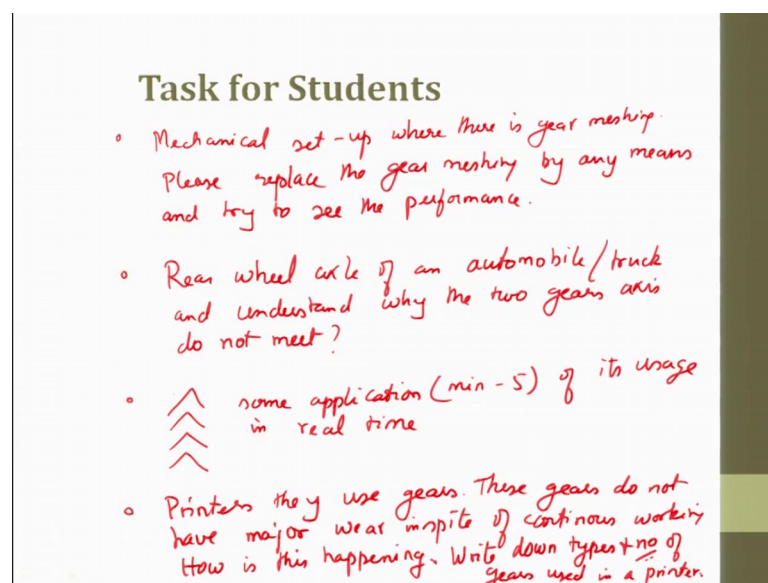 Task for Students
Mechanical set-up where there is gear meshing.
Please replace the gear meshing by any means
and try to see the performance.
Rear wheel axle of an automobile/truck
and understand why the two gears axis
do not meet?
some application (min-5) of its usage
in real time
Printers they use gears. These gears do not
have major wear inspite of continous working
How is this happening. Write down types + no of
gears used in a printer.